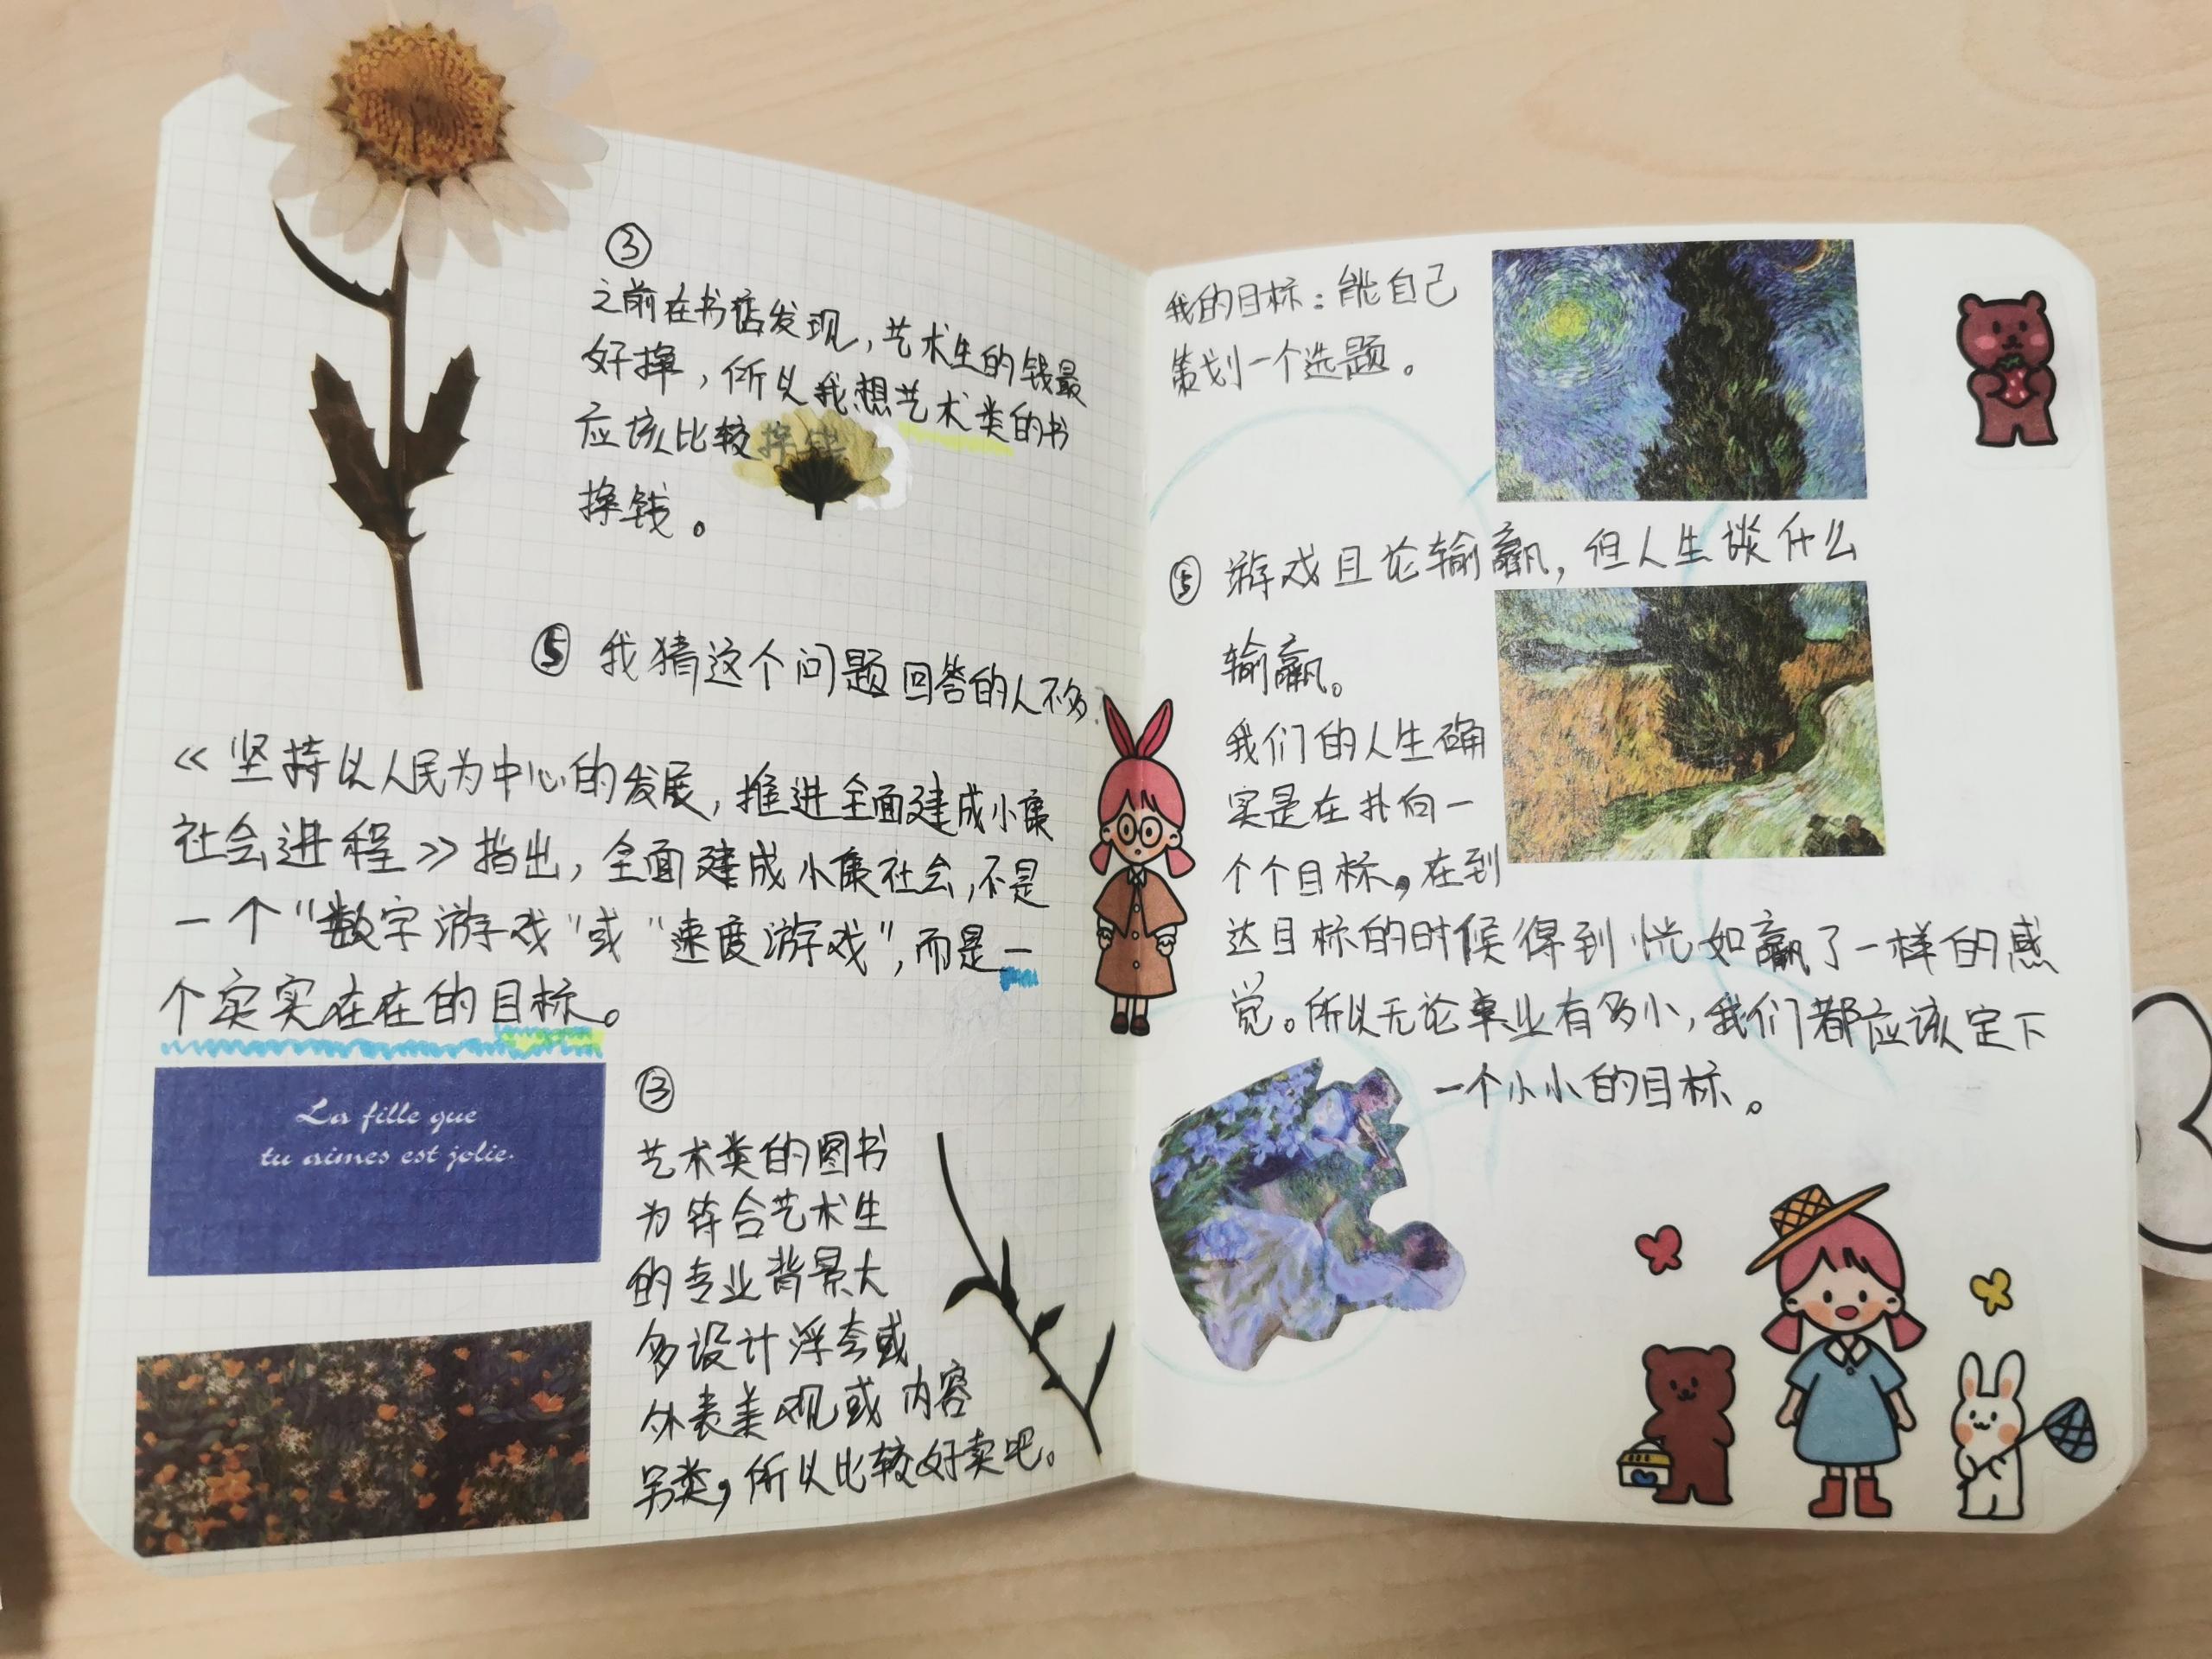 ③
之前在书店发现，艺术生的钱最
好挣，所以我想艺术类的书
应该比较挣钱
挣钱。
⑤ 我猜这个问题回答的人不多.
《坚持以人民为中心的发展，推进全面建成小康
社会进程》指出，全面建成小康社会，不是
一个“数字游戏”或“速度游戏”，而是一
个实实在在的目标。
La fille que
tu aimes est jolie.
③
艺术类的图书
为符合艺术生
的专业背景大
多设计浮夸或
外表美观或内容
另类，所以比较好卖吧。
我的目标：能自己
策划一个选题。
⑤ 游戏且论输赢，但人生谈什么
输赢。
我们的人生确
实是在扑向一
个个目标，在到
达目标的时候得到恍如赢了一样的感
觉。所以无论事业有多小，我们都应该定下
一个小小的目标。